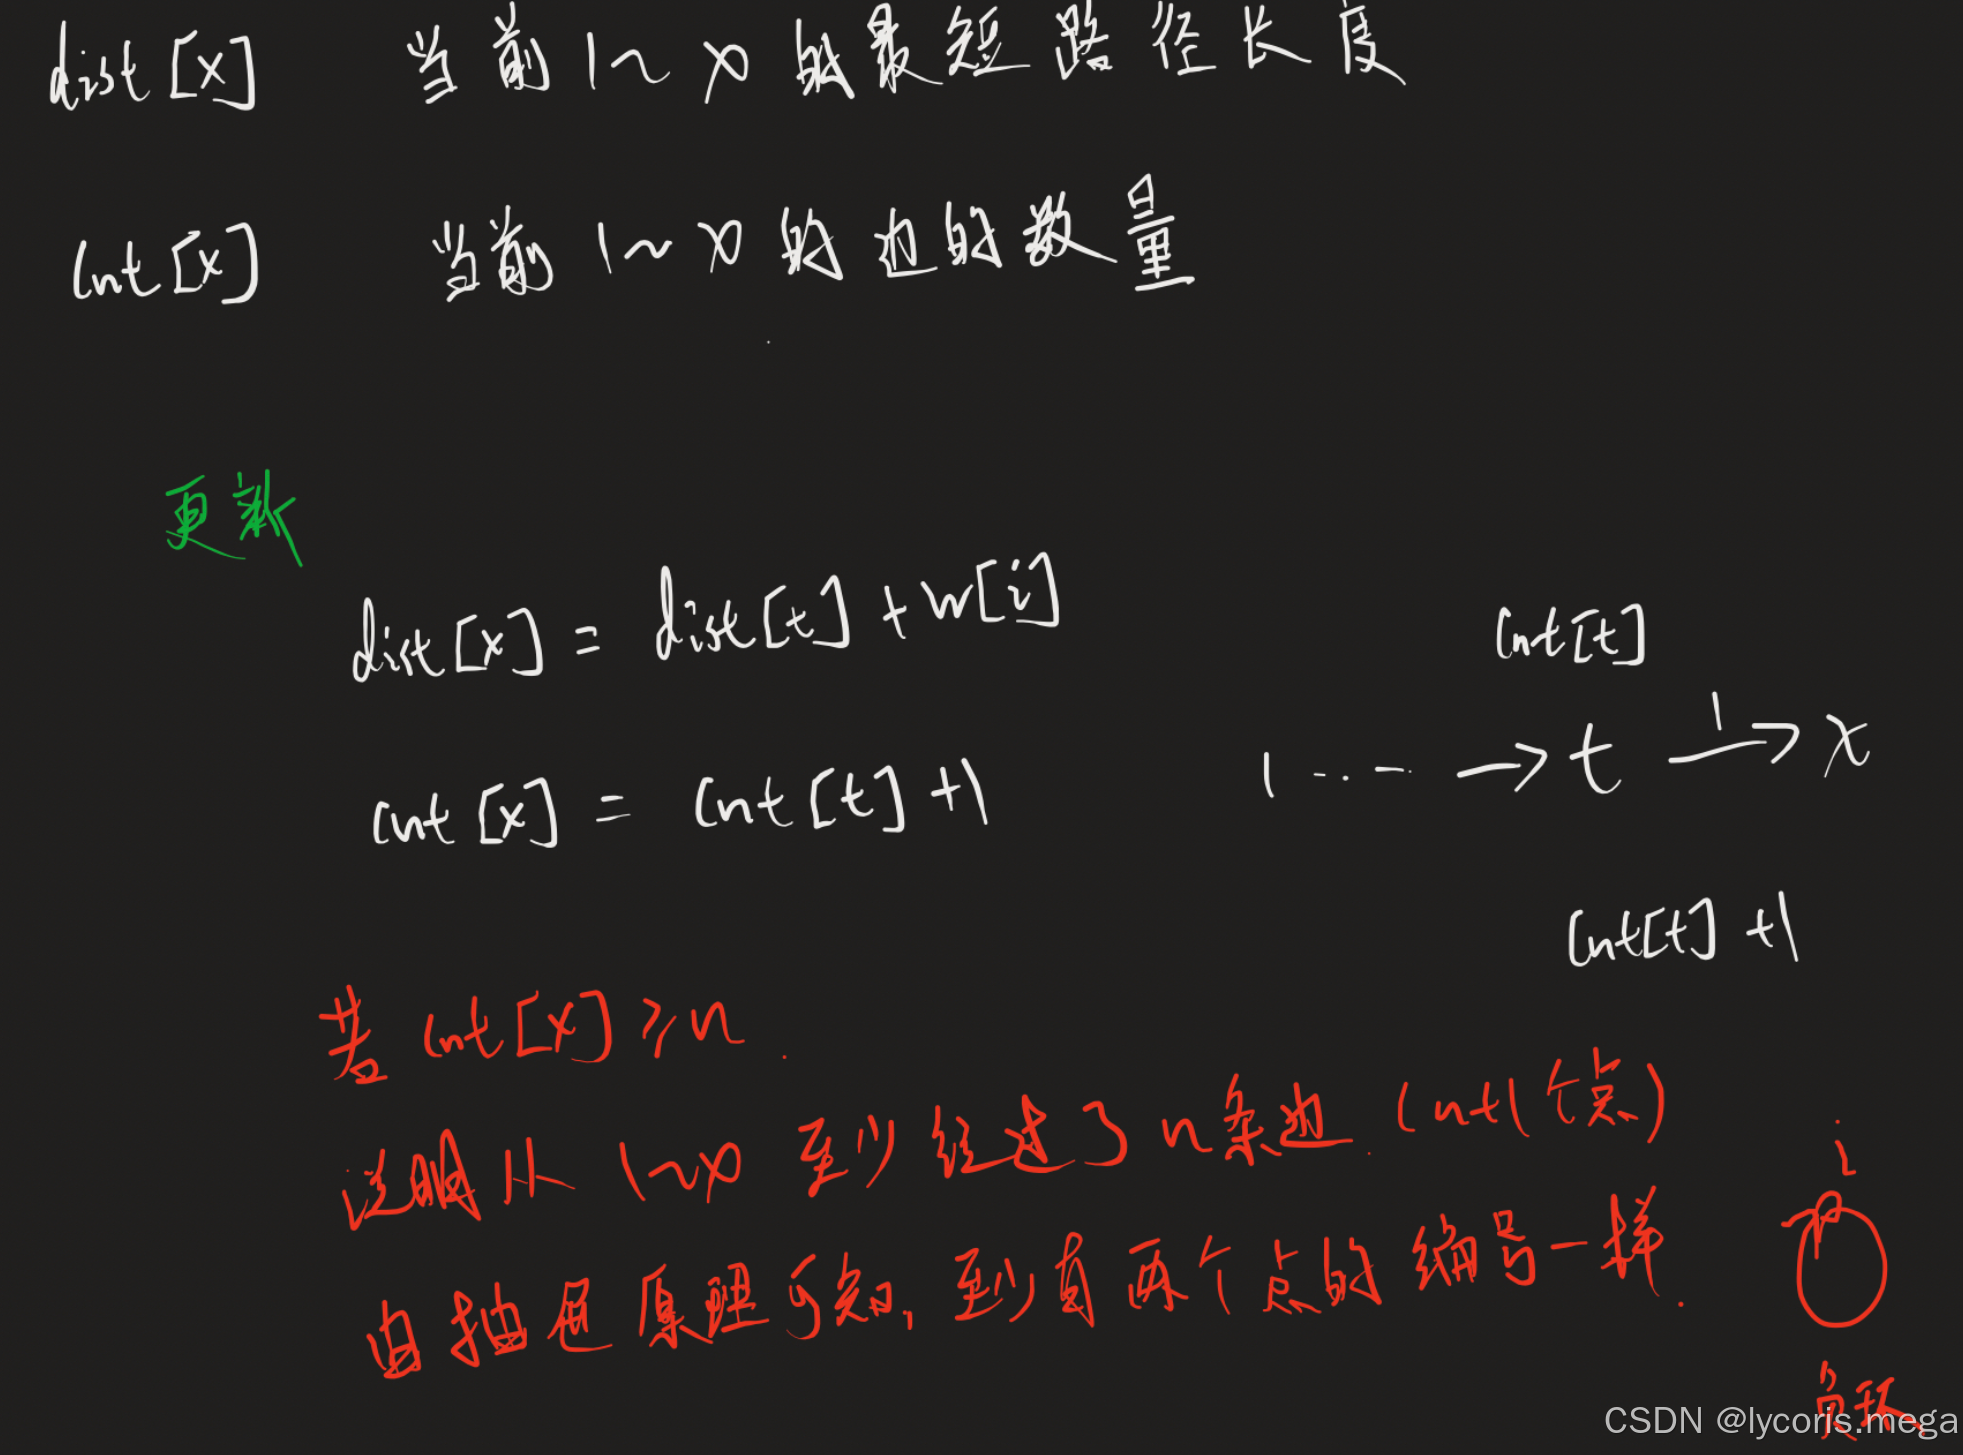 dist[x] 当前1~x的最短路径长度
cnt[x] 当前1~x的边的数量
更新
dist[x] = dist[t] + w[i]
cnt[t]
1 ... → t 1→ x
cnt[x] = cnt[t] +1
cnt[t] +1
若 cnt[x] ≥ n.
说明从 1~x 至少经过了n条边. (n+1个点)
i
由抽屉原理可知, 至少有两个点的编号一样.
负环
CSDN @lycoris.mega